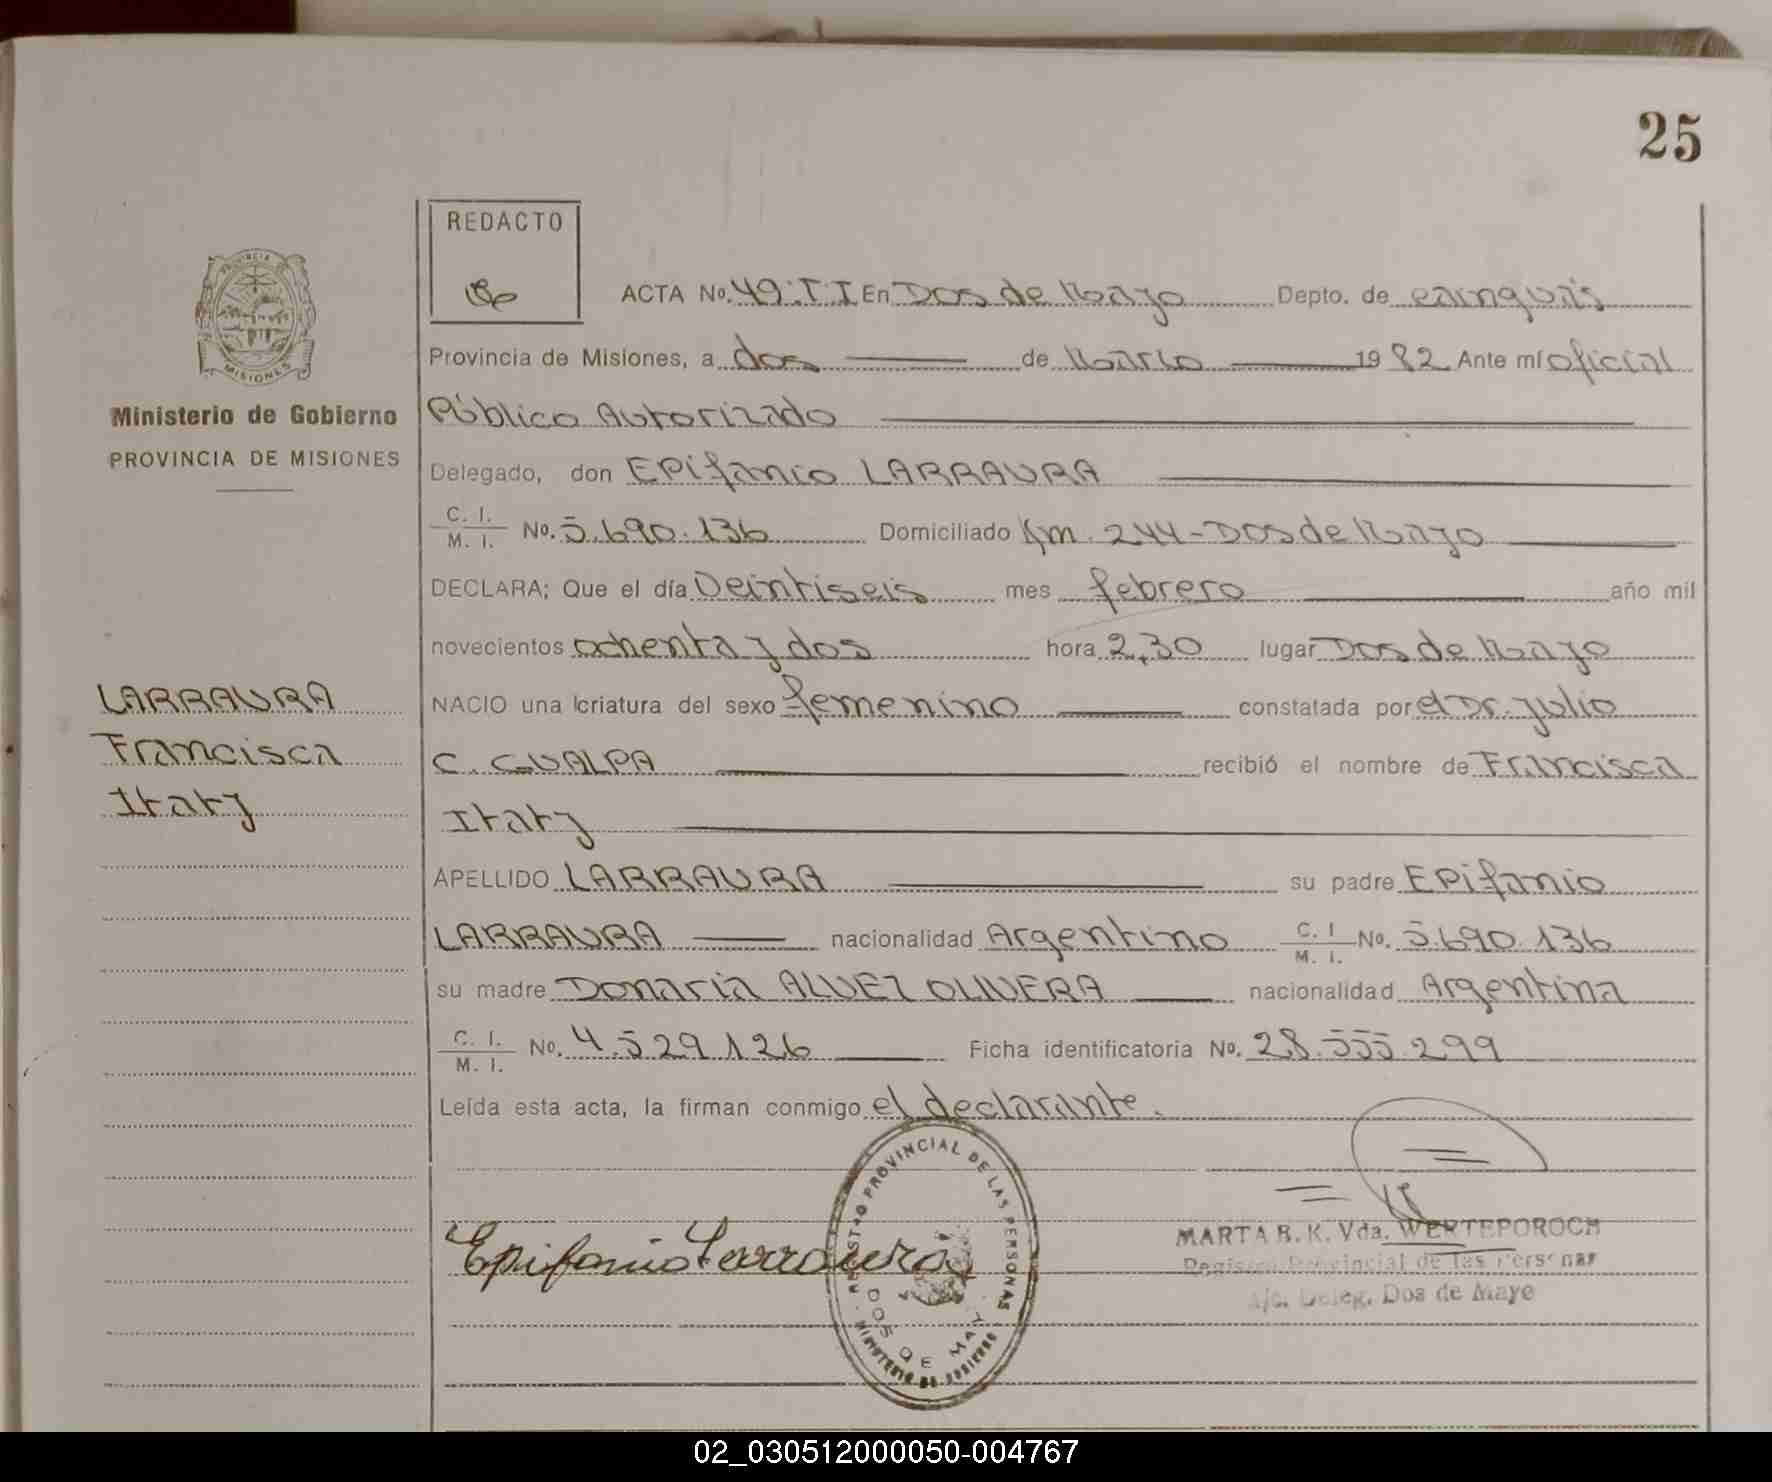 25
REDACTO
ACTA No. 49:TI En Dos de Mayo Depto. de cainguás
Provincia de Misiones, a dos de Marzo 1982 Ante mí oficial
Público Autorizado
Delegado, don EPifanio LARRAURA
C. I. / M. I. No. 5.690.136 Domiciliado Km. 244-Dos de Mayo
DECLARA; Que el día Veintiseis mes febrero año mil
novecientos ochenta y dos hora 2,30 lugar Dos de Mayo
NACIO una criatura del sexo femenino constatada por el Dr. Julio
C. GUALPA recibió el nombre de Francisca
Itaty
APELLIDO LARRAURA su padre EPifanio
LARRAURA nacionalidad Argentino C. I / M. I. No. 5.690.136
su madre Donaria ALVEZ OLIVERA nacionalidad Argentina
C. I. / M. I. No. 4.529.126 Ficha identificatoria No. 28.555.299
Leída esta acta, la firman conmigo el declarante.
PROVINCIA DE
MISIONES
Ministerio de Gobierno
PROVINCIA DE MISIONES
LARRAURA
Francisca
Itaty
Epifanio Larraura
REGISTRO PROVINCIAL DE LAS PERSONAS
DOS DE MAYO
MINISTERIO DE GOBIERNO
MARTA B. K. Vda. WERTEPOROCH
Registro Provincial de las Personas
A/c. Deleg. Dos de Mayo
02_030512000050-004767